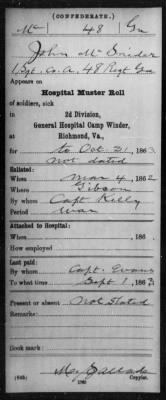 (CONFEDERATE.)
Mc 48 Ga
John McSnider
1 Sgt. Co. A, 48 Regt Ga
Appears on
Hospital Muster Roll
of soldiers, sick in
2d Division,
General Hospital Camp Winder,
at Richmond, Va.,
for to Oct. 31, 1863
not dated
Enlisted:
When Mar 4, 1862
Where Gibson
By whom Capt Kelly
Period War
Attached to Hospital:
When , 186
How employed
Last paid:
By whom Capt. Evans
To what time Sept 1, 186
Present or absent Not stated
Remarks:
Book mark:
(646)
Copyist.